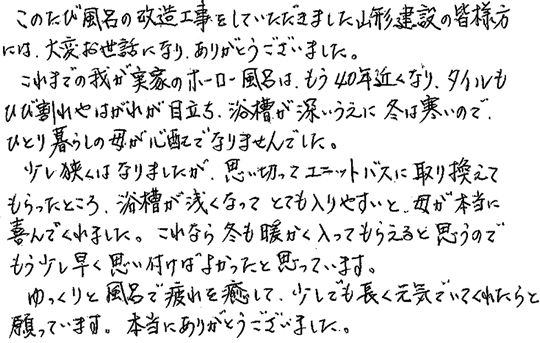 このたび風呂の改造工事をしていただきました山形建設の皆様方
には、大変お世話になり、ありがとうございました。
これまでの我が実家のホーロー風呂は、もう40年近くなり、タイルも
ひび割れやはがれが目立ち、浴槽が深いうえに冬は寒いので、
ひとり暮らしの母が心配でなりませんでした。
少し狭くはなりましたが、思い切ってユニットバスに取り換えて
もらったところ、浴槽が浅くなってとても入りやすいと、母が本当に
喜んでくれました。これなら冬も暖かく入ってもらえると思うので
もう少し早く思い付けばよかったと思っています。
ゆっくりと風呂で疲れを癒して、少しでも長く元気でいてくれたらと
願っています。本当にありがとうございました。